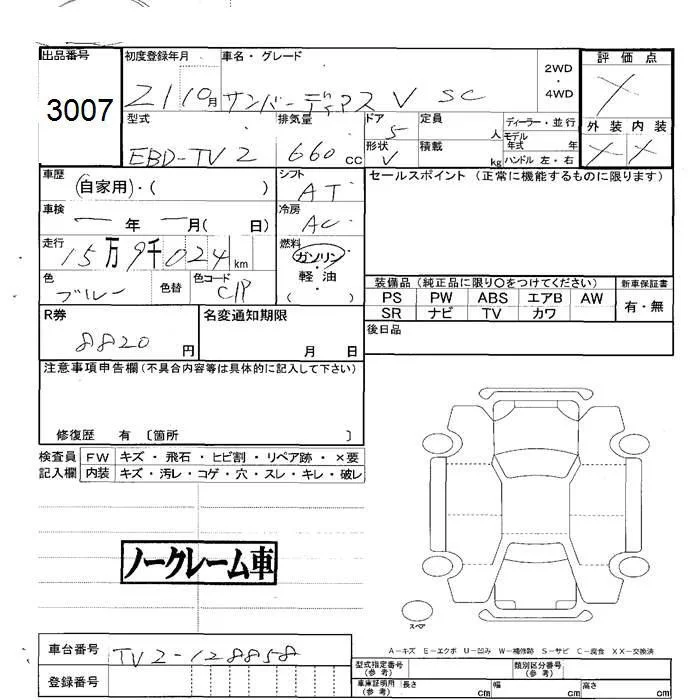 出品番号 初度登録年月 車名・グレード 評価点
3007 21 10月 サンバーディアス V SC 2WD・4WD
型式 排気量 ドア 5 定員 人 ディーラー・並行 外装 内装
EBD-TV2 660 cc 形状 V 積載 kg モデル年式 年 ハンドル 左・右
車歴 (自家用)・( ) シフト AT セールスポイント (正常に機能するものに限ります)
車検 年 月( 日) 冷房 AC
走行 15万9千024km 燃料 ガソリン・軽油 ( )
色 ブルー 色替 色コード 装備品 (純正品に限り○をつけてください) 新車保証書
PS PW ABS エアB AW 有・無
SR ナビ TV カワ
R券 8820円 名変通知期限 月 日 後日品
注意事項申告欄(不具合内容等は具体的に記入して下さい)
修復歴 有 〔箇所 〕
検査員 FW キズ・飛石・ヒビ割・リペア跡・×要
記入欄 内装 キズ・汚レ・コゲ・穴・スレ・キレ・破レ
ノークレーム車
スペア
A−キズ E−エクボ U−凹み W−補修跡 S−サビ C−腐食 XX−交換済
車台番号 TV2-128858
登録番号
型式指定番号(参考) 類別区分番号(参考)
車庫証明用(参考) 長さ cm 幅 cm 高さ cm